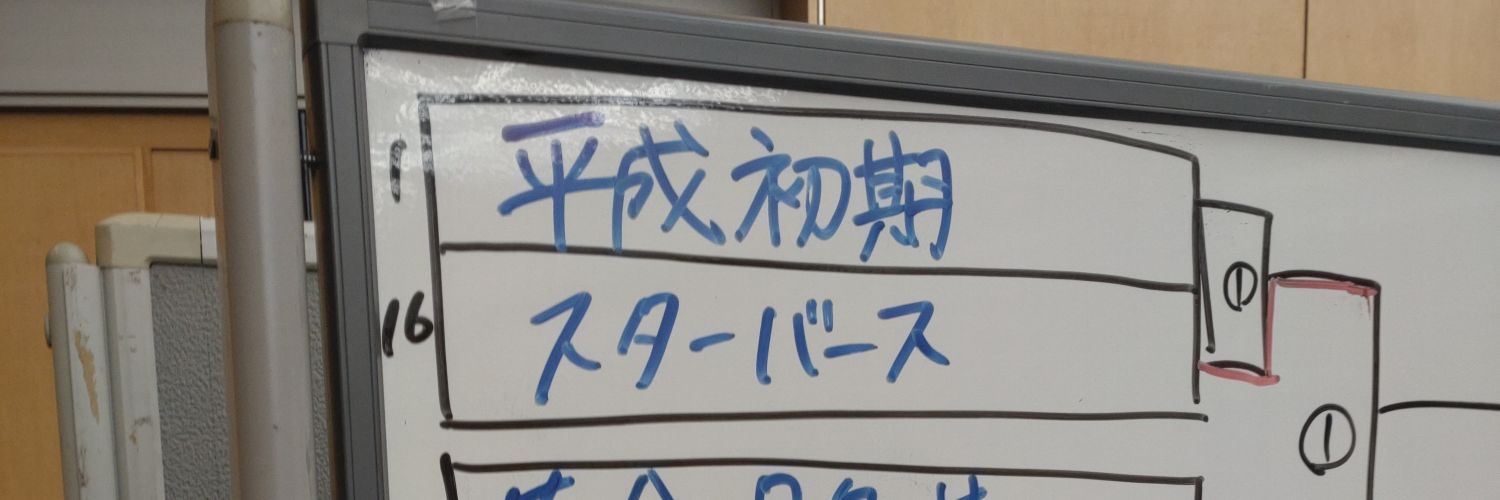 1 平成初期
①
16 スターバース
①